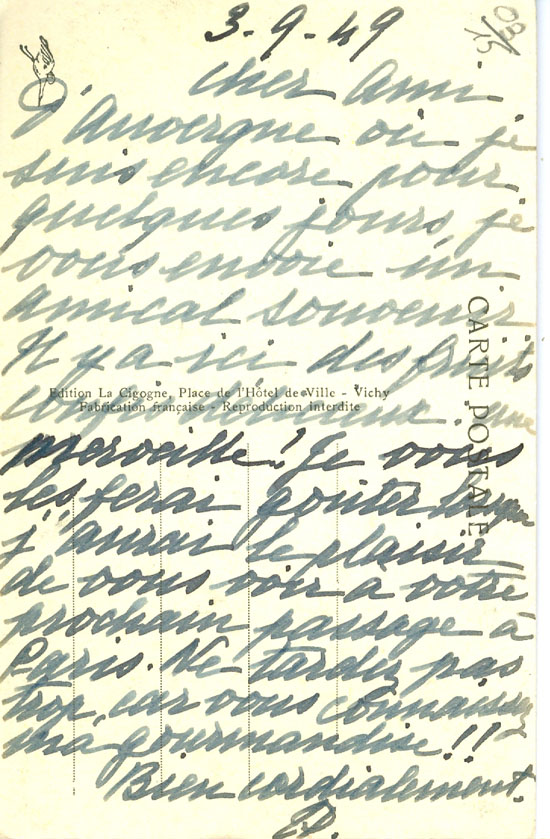 3-9-49
Cher Ami.
D'Auvergne où je
suis encore pour
quelques jours, je
vous envoie un
amical souvenir
Il y a ici des fruits
Edition La Cigogne, Place de l'Hôtel de Ville - Vichy
Fabrication française - Reproduction interdite
une
merveille! Je vous
les ferai goûter lorsque
j'aurai le plaisir
de vous voir à votre
prochain passage à
Paris. Ne tardez pas
trop, car vous connaissez
ma gourmandise!!
Bien cordialement.
CARTE POSTALE